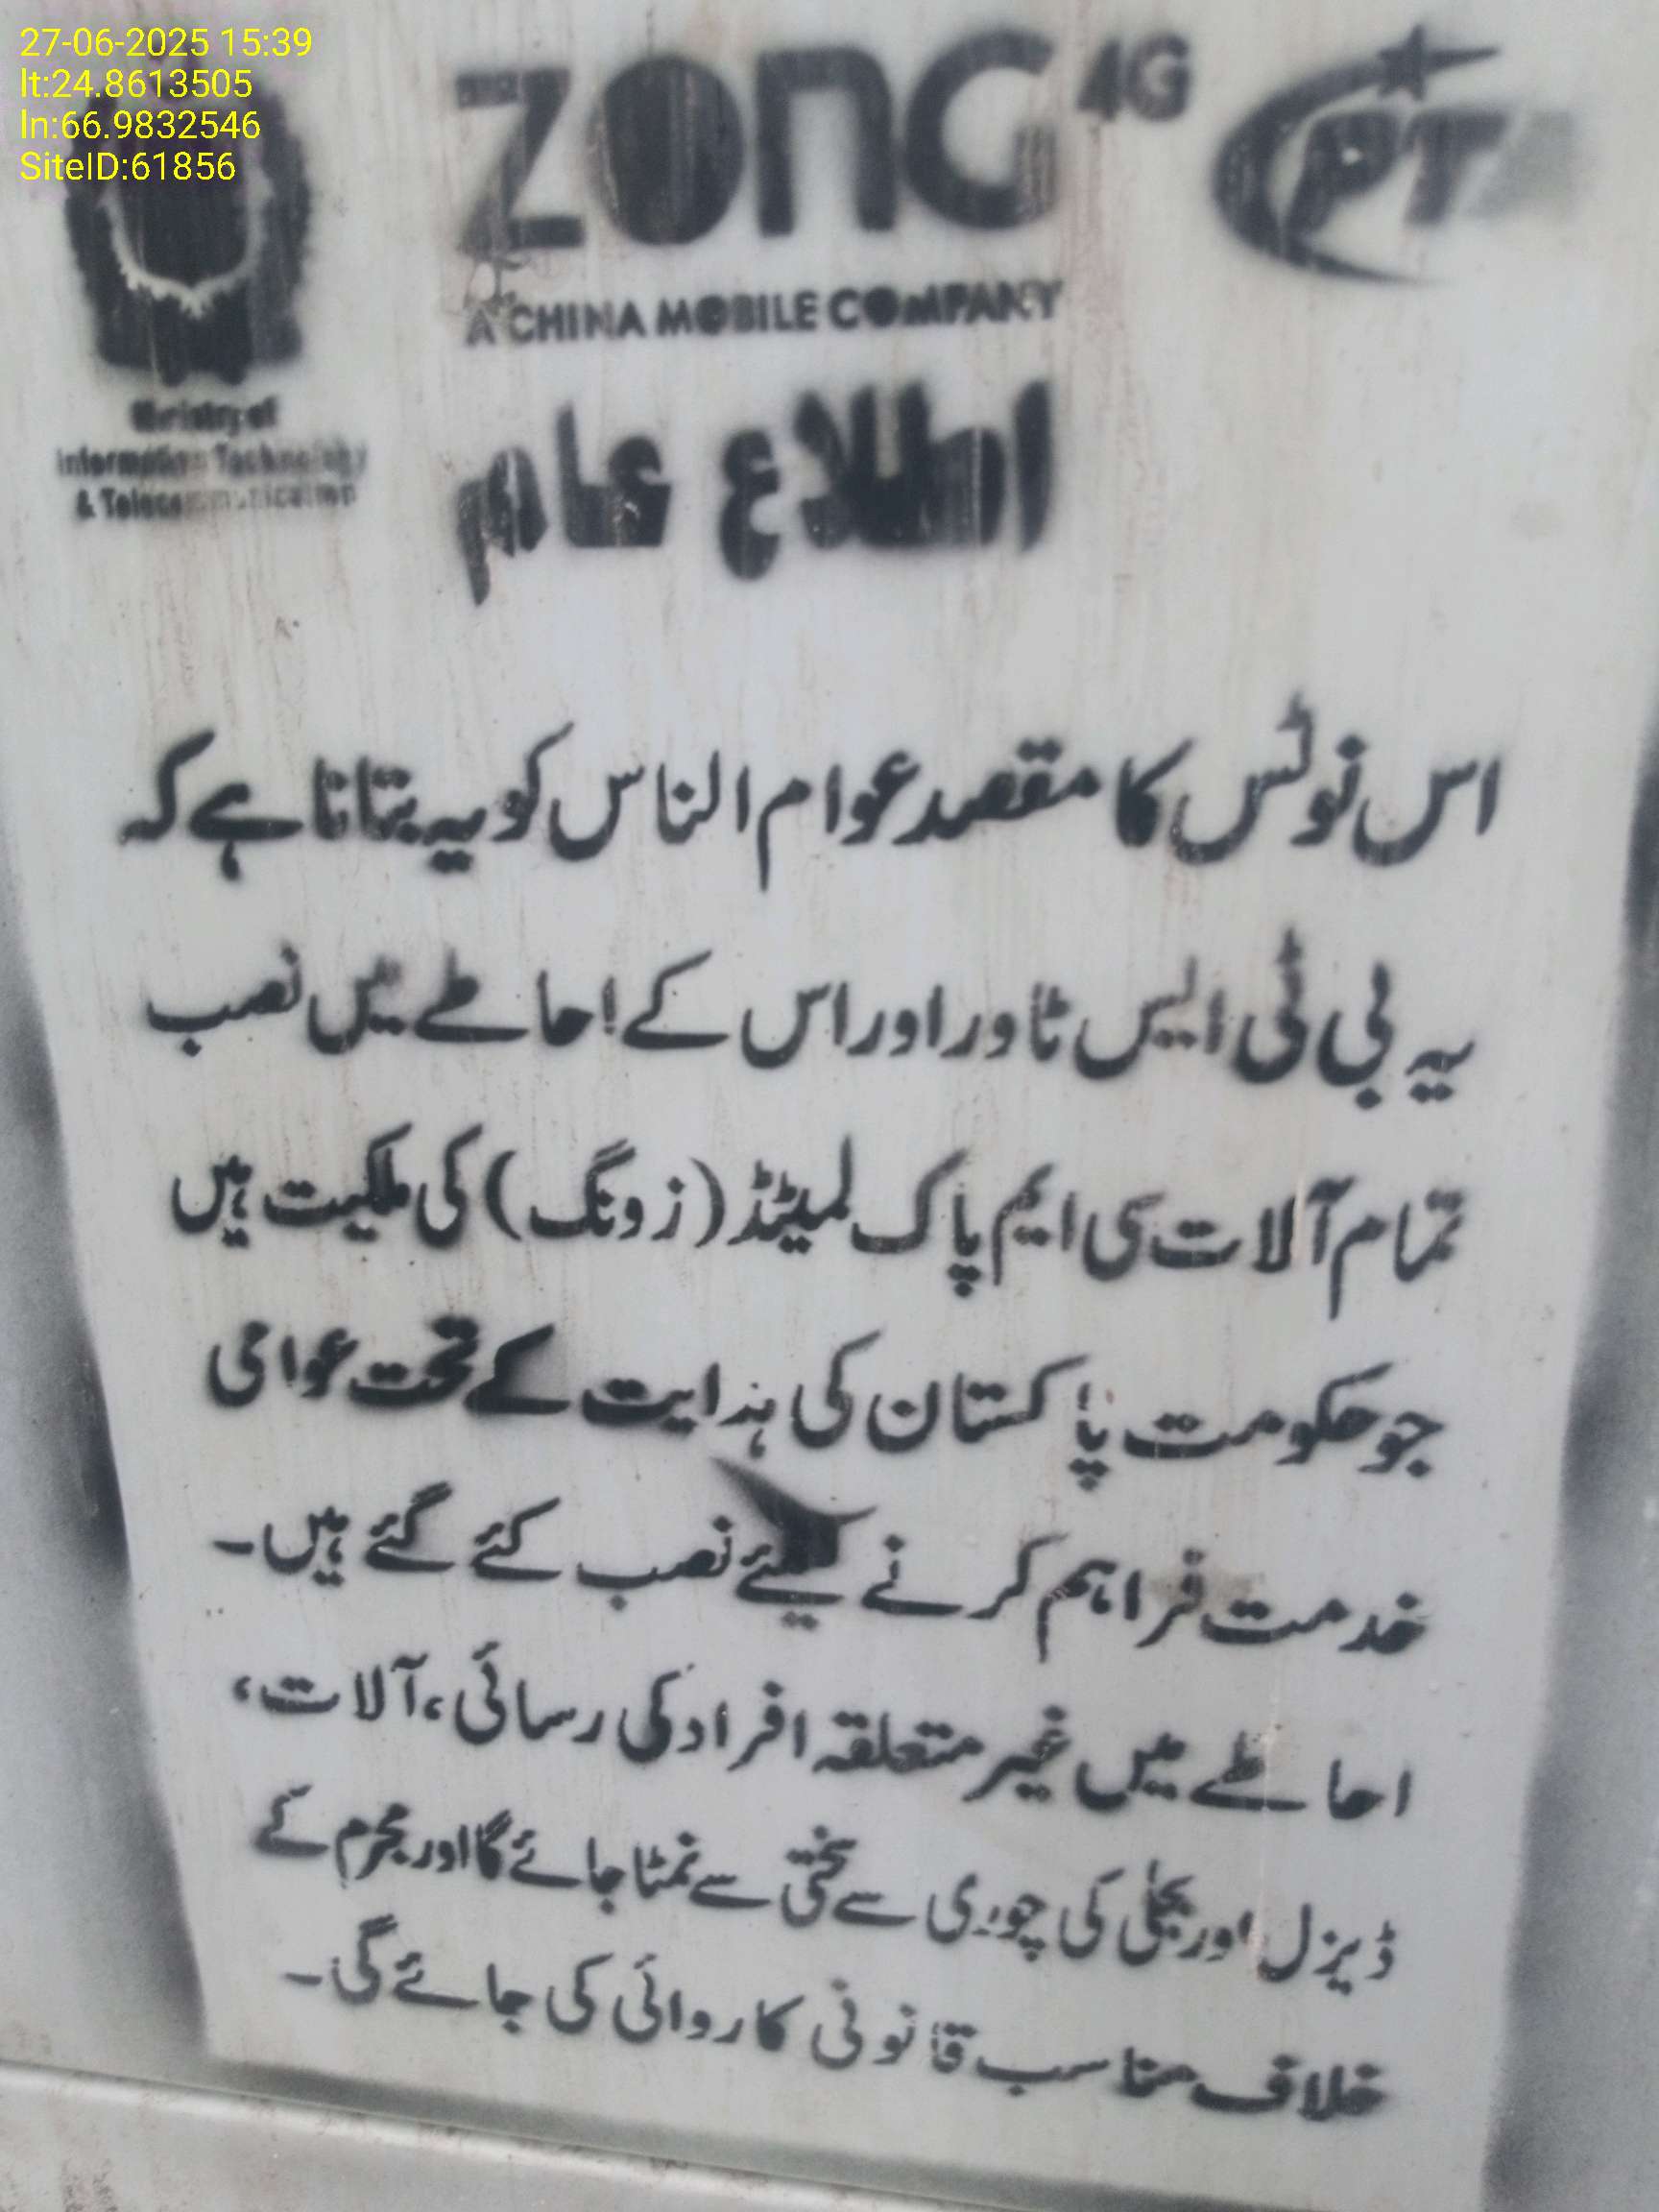 27-06-2025 15:39
lt:24.8613505
ln:66.9832546
SiteID:61856
zong 4G
A CHINA MOBILE COMPANY
PT
Ministry of
Information Technology
& Telecommunication
اطلاع عام
اس نوٹس کا مقصد عوام الناس کو یہ بتانا ہے کہ
یہ بی ٹی ایس ٹاور اور اس کے احاطے میں نصب
تمام آلات سی ایم پاک لمیٹڈ (زونگ) کی ملکیت ہیں
جو حکومت پاکستان کی ہدایت کے تحت عوامی
خدمت فراہم کرنے کیلئے نصب کئے گئے ہیں۔
احاطے میں غیر متعلقہ افراد کی رسائی، آلات،
ڈیزل اور بجلی کی چوری سے سختی سے نمٹا جائے گا اور مجرم کے
خلاف مناسب قانونی کاروائی کی جائے گی۔